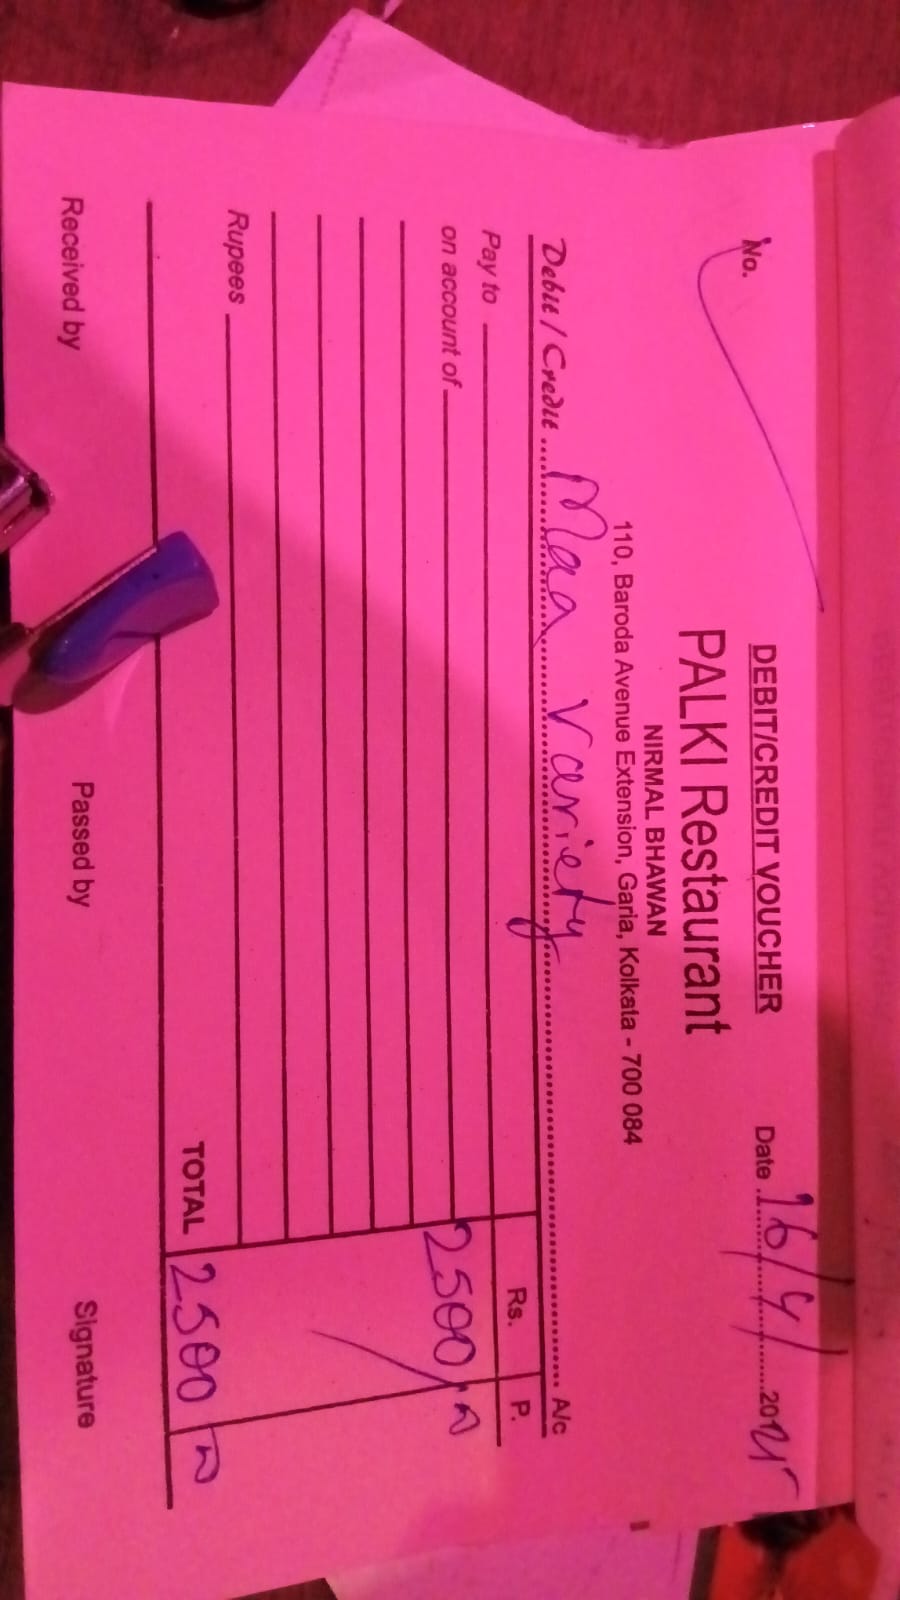 DEBIT/CREDIT VOUCHER
No. Date 16/4/ 20
PALKI Restaurant
NIRMAL BHAWAN
110, Baroda Avenue Extension, Garia, Kolkata - 700 084
Debit / Credit Maa Variety A/c
Pay to Rs. P.
on account of 2500/
Rupees
TOTAL 2500
Received by Passed by Signature